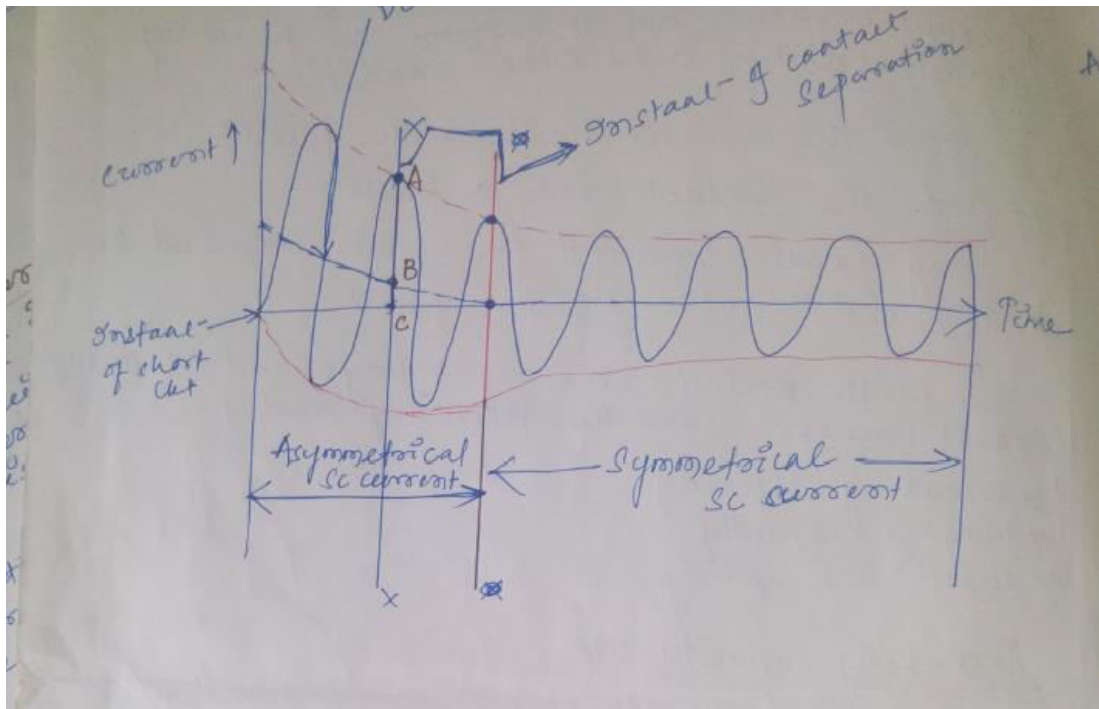 Current ↑
X
Instant of contact
Separation
A
B
C
Instant
of short
Ckt
Time
Asymmetrical
SC current
Symmetrical
SC current
X